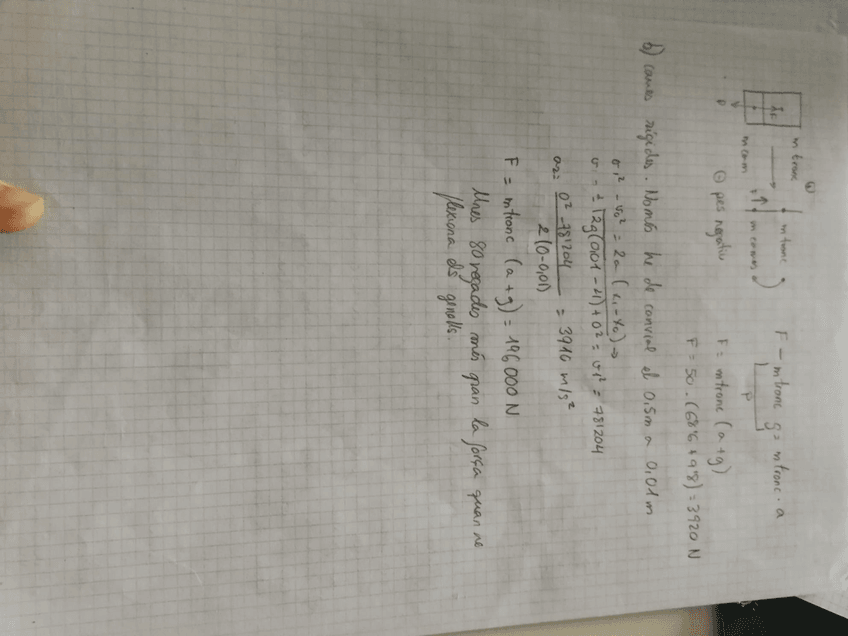 m tronc
m tronc
m cam
m cames
P
⊖ pes negatiu
F - mtronc g = mtronc · a
P
F = mtronc (a + g)
F = 50 · (68'6 + 9'8) = 3920 N
b) cames rígides. Només he de canviar el 0,5m a 0,01m
v₁² - v₀² = 2a (
v = ± √2g(0,01 - 4) + 0² = v1² = 78'1204
a₂ = 0² - 78'1204 / 2(0-0,01) = 3910 m/s²
F = mtronc (a + g) = 196000 N
80 vegades més gran la força quan no
flexiona els genolls.